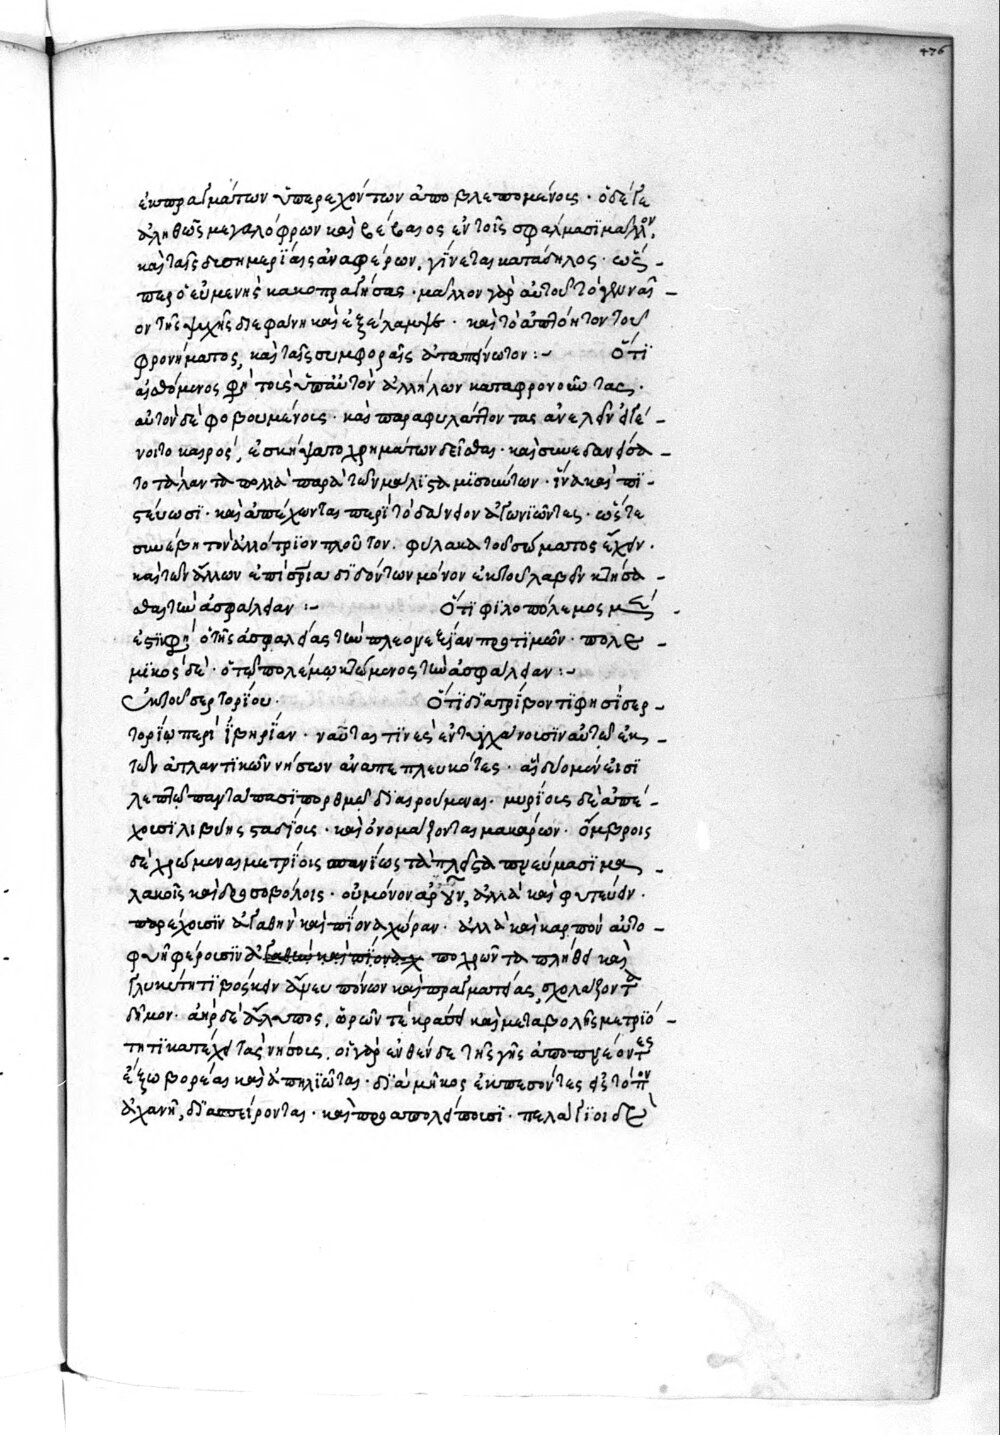 476
ἐκπραγμάτων ὑπερεχόντων ἀποβλεπομένοις · ὁδέγε
ἀληθῶς μεγαλόφρων καὶ βέβαιος ἐν τοῖς σφάλμασϊ μᾶλλον,
καὶ ταῖς δυσημερϊαις ἀναφέρων, γίνεται κατάδηλος · ὥσ-
περ ὁ εὐμενὴς κακοπραγήσας · μᾶλλον γὰρ αὐτοῦ τὸ γενναῖ-
ον τῆς ψυχῆς διεφάνη καὶ ἐξέλαμψε · καὶ τὸ ἀπτόητον τοῦ
φρονήματος, καὶ ταῖς συμφοραῖς ἀταπείνωτον :- Ὅτϊ
αἰσθόμενος φη τοὺς ὑπ' αὐτὸν ἀλλήλων καταφρονοῦντας ·
αὐτὸν δὲ φοβουμένοις · καὶ παραφυλάττοντας ἀνελεῖν εἰ γέ-
νοιτο καιρός, ἐσκήψατο χρημάτων δεῖσθαι · καὶ συνεδανείσα-
το τάλαντα πολλὰ παρὰ τῶν μάλϊστα μϊσούντων · ἵνα καὶ πϊ-
στεύωσϊ · καὶ ἀπέχωνται περὶ τὸ δάνειον ἀγωνϊῶντες · ὥστε
συνέβη τὸν ἀλλότρϊον πλοῦτον · φύλακα τοῦ σώματος ἔχειν ·
καὶ τῶν ἄλλων ἐπὶ σωτηρία δϊδόντων μόνον ἐκ τοῦ λαβεῖν κτήσα-
σθαι τὴν ἀσφάλειαν :- Ὅτϊ φϊλοπόλεμος μέν
ἐστϊ φη ὁ τῆς ἀσφαλείας τὴν πλεονεξίαν προτϊμῶν · πολε-
μϊκὸς δὲ · ὁ τῷ πολέμῳ κτώμενος τὴν ἀσφάλειαν :-
Ἐκ τοῦ σερτορϊου · Ὅτϊ δϊατρϊβοντϊ φησϊ σερ-
τορϊῳ περὶ ἰβηρϊαν · ναῦται τϊνὲς ἐντυγχάνοισϊν αὐτῷ ἐκ
τῶν ἀτλαντϊκῶν νήσων ἀναπεπλευκότες · αἳ δύο μέν εἰσϊ
λεπτῷ παντάπασϊ πορθμῷ δϊαιρούμεναι · μυρϊοις δὲ ἀπέ-
χοισϊ λιβύης σταδϊοις · καὶ ὀνομάζονται μακάρων · ὄμβροις
δὲ χρώμεναι μετρϊοις σπανϊως τὰ πλεῖστα πνεύμασϊ μα-
λακοῖς καὶ δροσοβόλοις · οὐ μόνον ἀροῦν, ἀλλὰ καὶ φυτεύειν ·
παρέχοισϊν ἀγαθὴν καὶ πϊονα χώραν · ἀλλὰ καὶ καρπὸν αὐτο-
φυῆ φέροισϊν ἀγαθὴν καὶ πϊονα χ ἀποχρῶντα πλήθει καὶ
γλυκύτητϊ βόσκειν ἄνευ πόνων καὶ πραγματείας, σχολάζοντα
δῆμον · ἀὴρ δὲ ἄλυπος, ὡρῶν τὲ κράσει καὶ μεταβολῆς μετρϊό-
τητϊ κατέχει τὰς νήσοις, οἱ γὰρ ἐνθένδε τῆς γῆς ἀποπνέοντες
ἔξω βορέαι καὶ ἀπηλϊῶται · δϊὰ μῆκος ἐκπεσόντες εἰς τόπον
ἀχανῆ, δϊασπείρονται · καὶ προαπολείποισϊ · πελάγϊοι δὲ